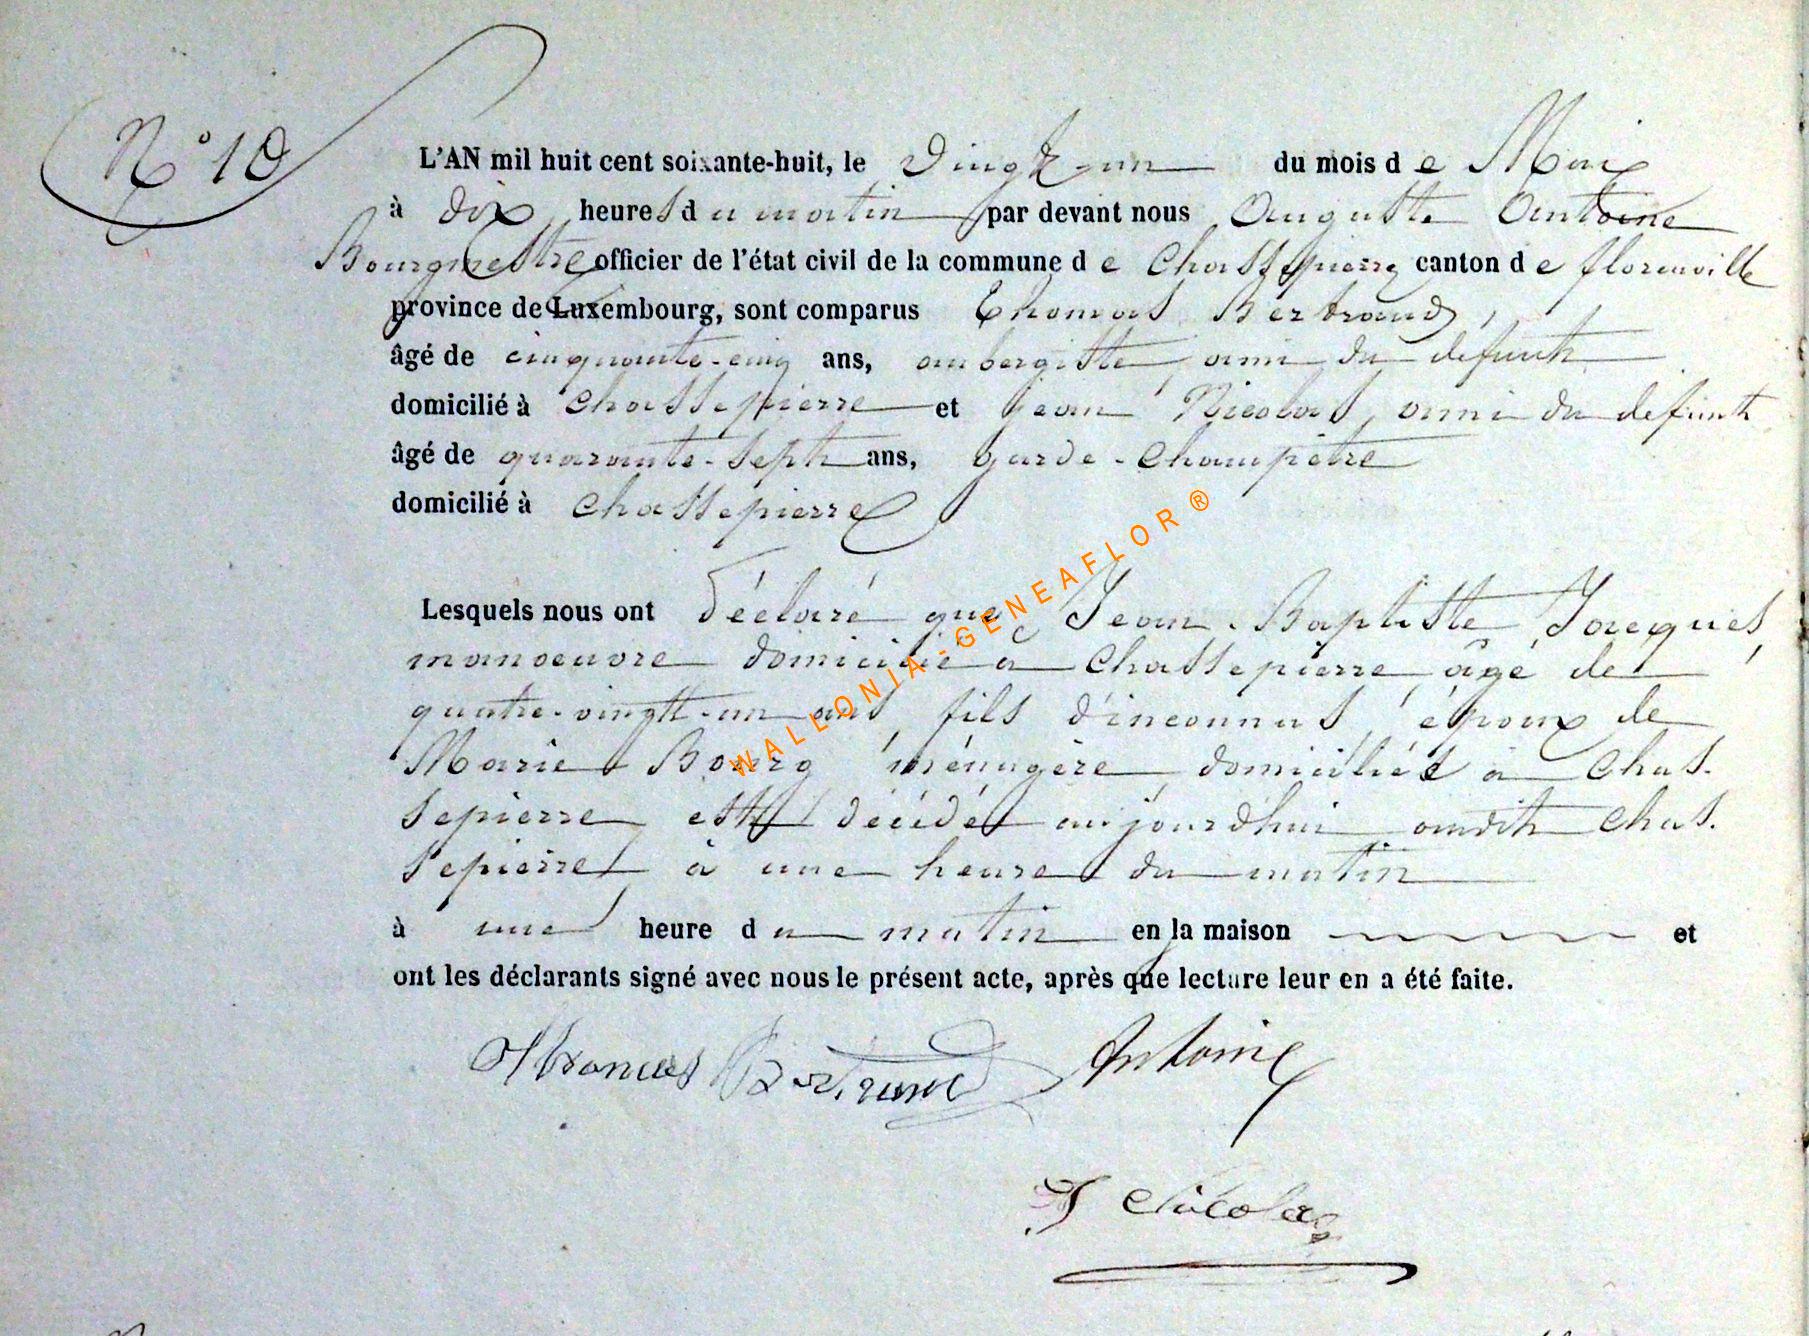 N° 10
L'AN mil huit cent soixante-huit, le vingt-un du mois de Mai
à dix heures du matin par devant nous Auguste Antoine
Bourgmestre officier de l'état civil de la commune de Chassepierre canton de florenville
province de Luxembourg, sont comparus Thomas Bertrand,
âgé de cinquante-cinq ans, aubergiste, ami du défunt
domicilié à Chassepierre et jean Nicolas, ami du défunt
âgé de quarante-sept ans, garde-champêtre
domicilié à Chassepierre
Lesquels nous ont déclaré que Jean-Baptiste Jacques,
manoeuvre domicilié à Chassepierre, âgé de
quatre-vingt-un ans, fils d'inconnus, époux de
Marie Bourg ménagère, domiciliés à Chas-
sepierre est décédé aujourdhui audit Chas-
sepierre, à une heure du matin
à une heure du matin en la maison et
ont les déclarants signé avec nous le présent acte, après que lecture leur en a été faite.
Thomas Bertrand Antoine
J Nicolas
WALLONIA-GENEAFLOR®